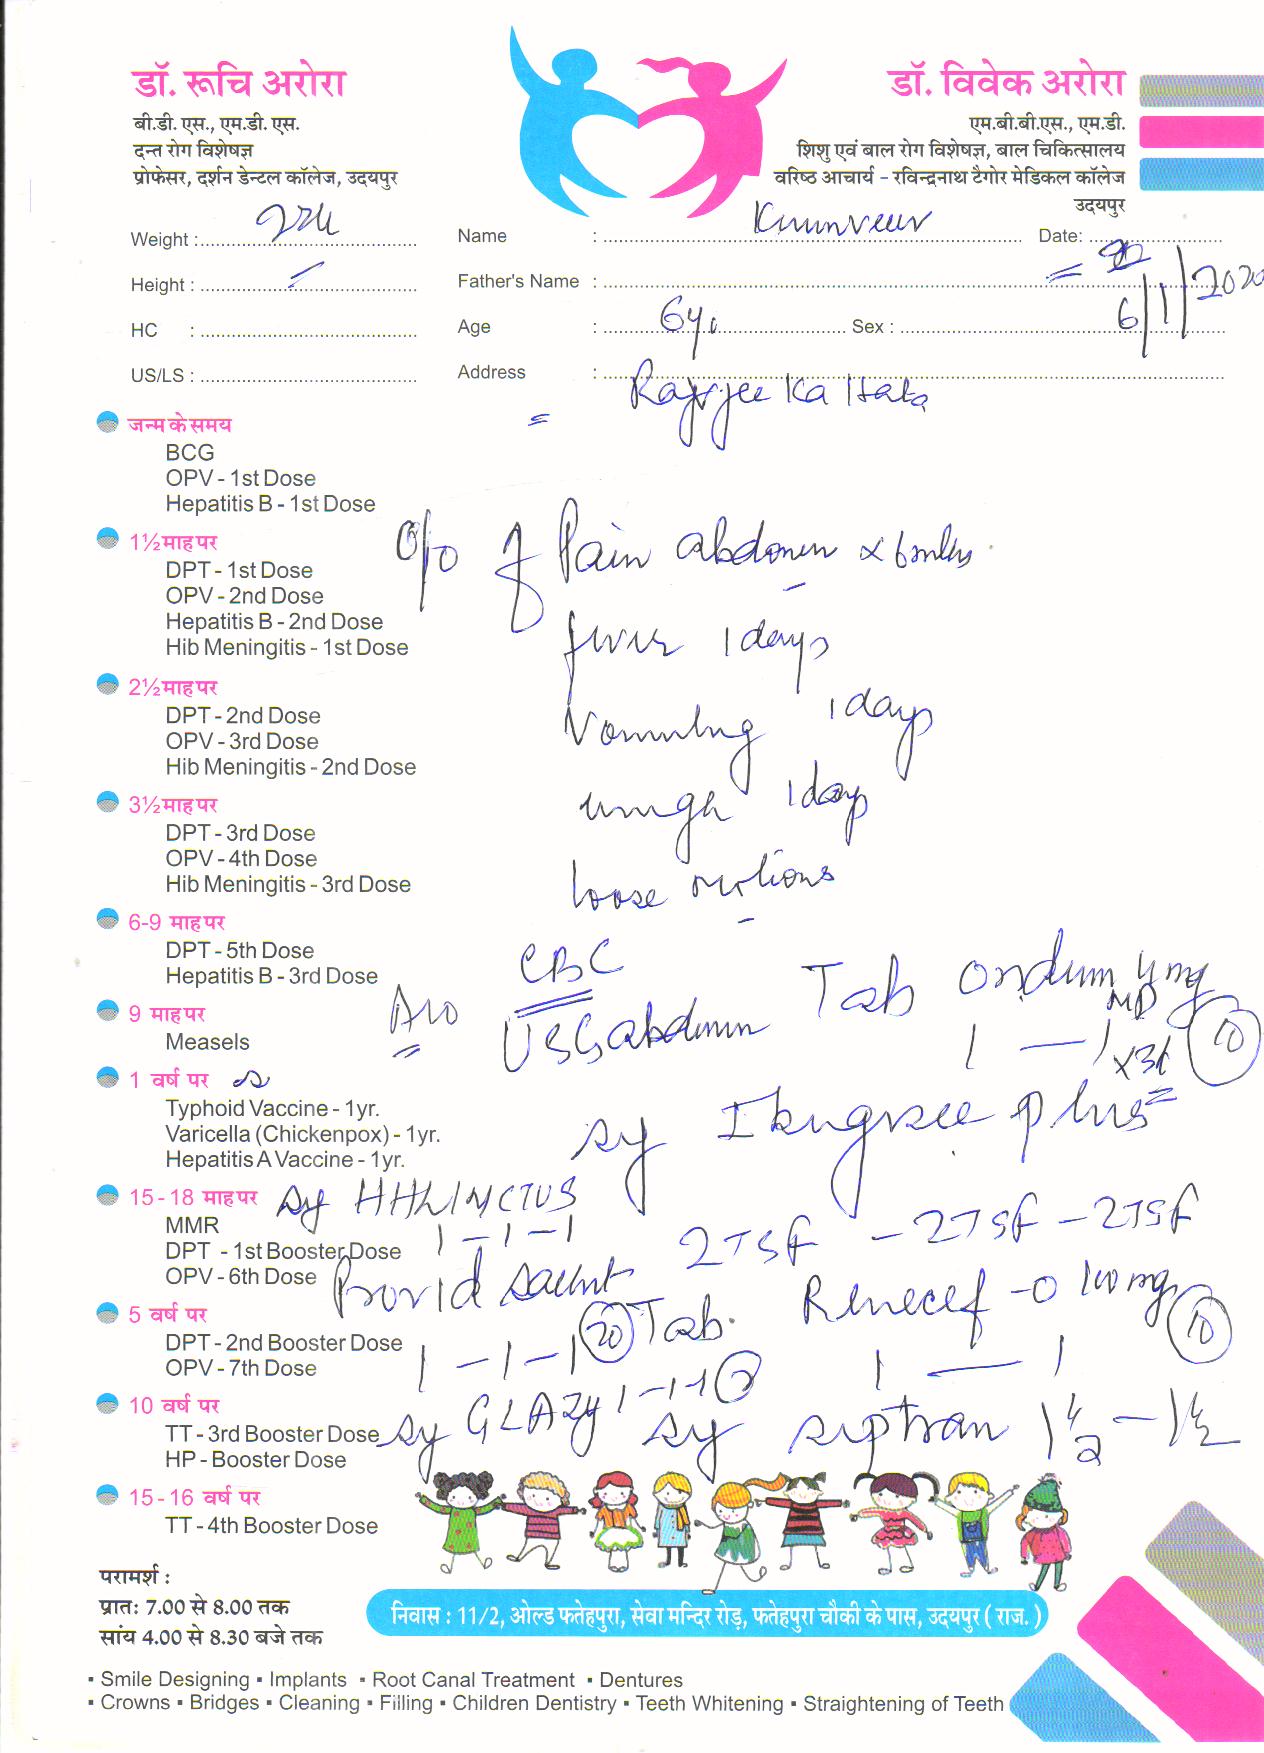 डॉ. रूचि अरोरा
बी.डी. एस., एम.डी. एस.
दन्त रोग विशेषज्ञ
प्रोफेसर, दर्शन डेन्टल कॉलेज, उदयपुर
डॉ. विवेक अरोरा
एम.बी.बी.एस., एम.डी.
शिशु एवं बाल रोग विशेषज्ञ, बाल चिकित्सालय
वरिष्ठ आचार्य - रविन्द्रनाथ टैगोर मेडिकल कॉलेज
उदयपुर
Weight : Name : Date:
Height : Father's Name : 6/1/2020
HC : Age : 6y. Sex :
US/LS : Address :
जन्म के समय
BCG
OPV - 1st Dose
Hepatitis B - 1st Dose
1½ माह पर
DPT - 1st Dose
OPV - 2nd Dose
Hepatitis B - 2nd Dose
Hib Meningitis - 1st Dose
2½ माह पर
DPT - 2nd Dose
OPV - 3rd Dose
Hib Meningitis - 2nd Dose
3½ माह पर
DPT - 3rd Dose
OPV - 4th Dose
Hib Meningitis - 3rd Dose
6-9 माह पर
DPT - 5th Dose
Hepatitis B - 3rd Dose
9 माह पर
Measels
1 वर्ष पर
Typhoid Vaccine - 1yr.
Varicella (Chickenpox) - 1yr.
Hepatitis A Vaccine - 1yr.
15 - 18 माह पर
MMR
DPT - 1st Booster Dose
OPV - 6th Dose
5 वर्ष पर
DPT - 2nd Booster Dose
OPV - 7th Dose
10 वर्ष पर
TT - 3rd Booster Dose
HP - Booster Dose
15 - 16 वर्ष पर
TT - 4th Booster Dose
Pain abdomen
fever 1 days
Vomiting 1 days
cough 1 day
loose motions
CBC
USG abdomen
Tab 4mg
MD
1 — 1 x3d 10
Sy plus
2TSF - 2TSF - 2TSF
Sy HHLINCTUS
1 - 1 - 1
1 - 1 - 1 20
Tab. Renecef-O 100mg 10
1 — 1
Sy GLAZY
Sy 1½ - 1½
परामर्श :
प्रातः 7.00 से 8.00 तक
सांय 4.00 से 8.30 बजे तक
निवास : 11/2, ओल्ड फतेहपुरा, सेवा मन्दिर रोड़, फतेहपुरा चौकी के पास, उदयपुर ( राज. )
▪ Smile Designing ▪ Implants ▪ Root Canal Treatment ▪ Dentures
▪ Crowns ▪ Bridges ▪ Cleaning ▪ Filling ▪ Children Dentistry ▪ Teeth Whitening ▪ Straightening of Teeth